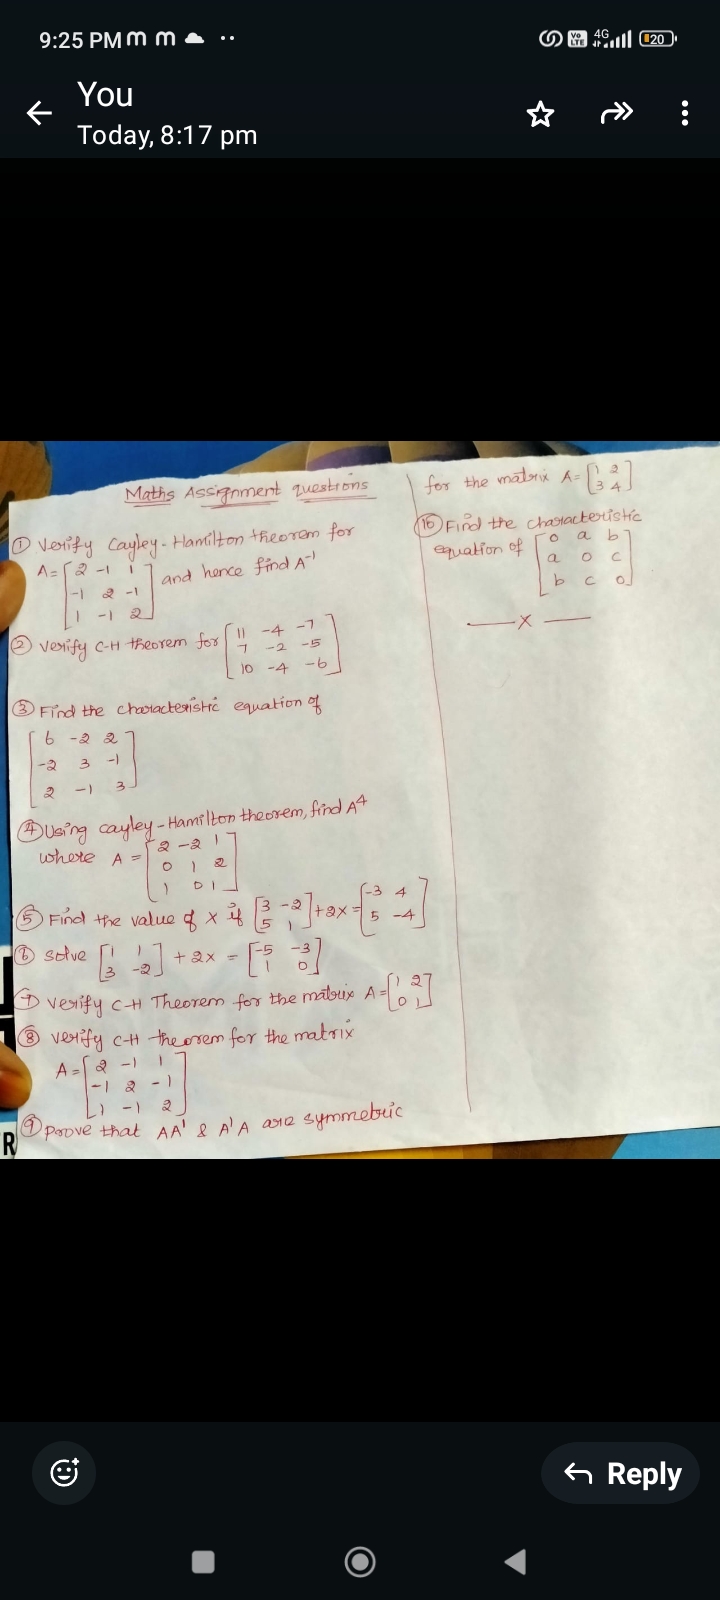 9:25 PM m m ··
Vo LTE 4G 20
You
Today, 8:17 pm
Maths Assignment questions
① Verify Cayley-Hamilton theorem for
A= [2 -1 1
-1 2 -1
1 -1 2] and hence find A⁻¹
② Verify C-H theorem for [11 -4 -7
7 -2 -5
10 -4 -6]
③ Find the characteristic equation of
[6 -2 2
-2 3 -1
2 -1 3]
④ Using cayley-Hamilton theorem, find A⁴
where A = [2 -2 1
0 1 2
1 0 1]
⑤ Find the value of x if [3 -2
5 1] + 2x = [-3 4
5 -4]
⑥ solve [1 1
3 -2] + 2x = [-5 -3
1 0]
⑦ verify C-H Theorem for the matrix A= [1 2
0 1]
⑧ verify C-H theorem for the matrix
A= [2 -1 1
-1 2 -1
1 -1 2]
⑨ prove that AA' & A'A are symmetric
for the matrix A= [1 2
3 4]
⑩ Find the characteristic
equation of [0 a b
a 0 c
b c 0]
—x—
R
Reply